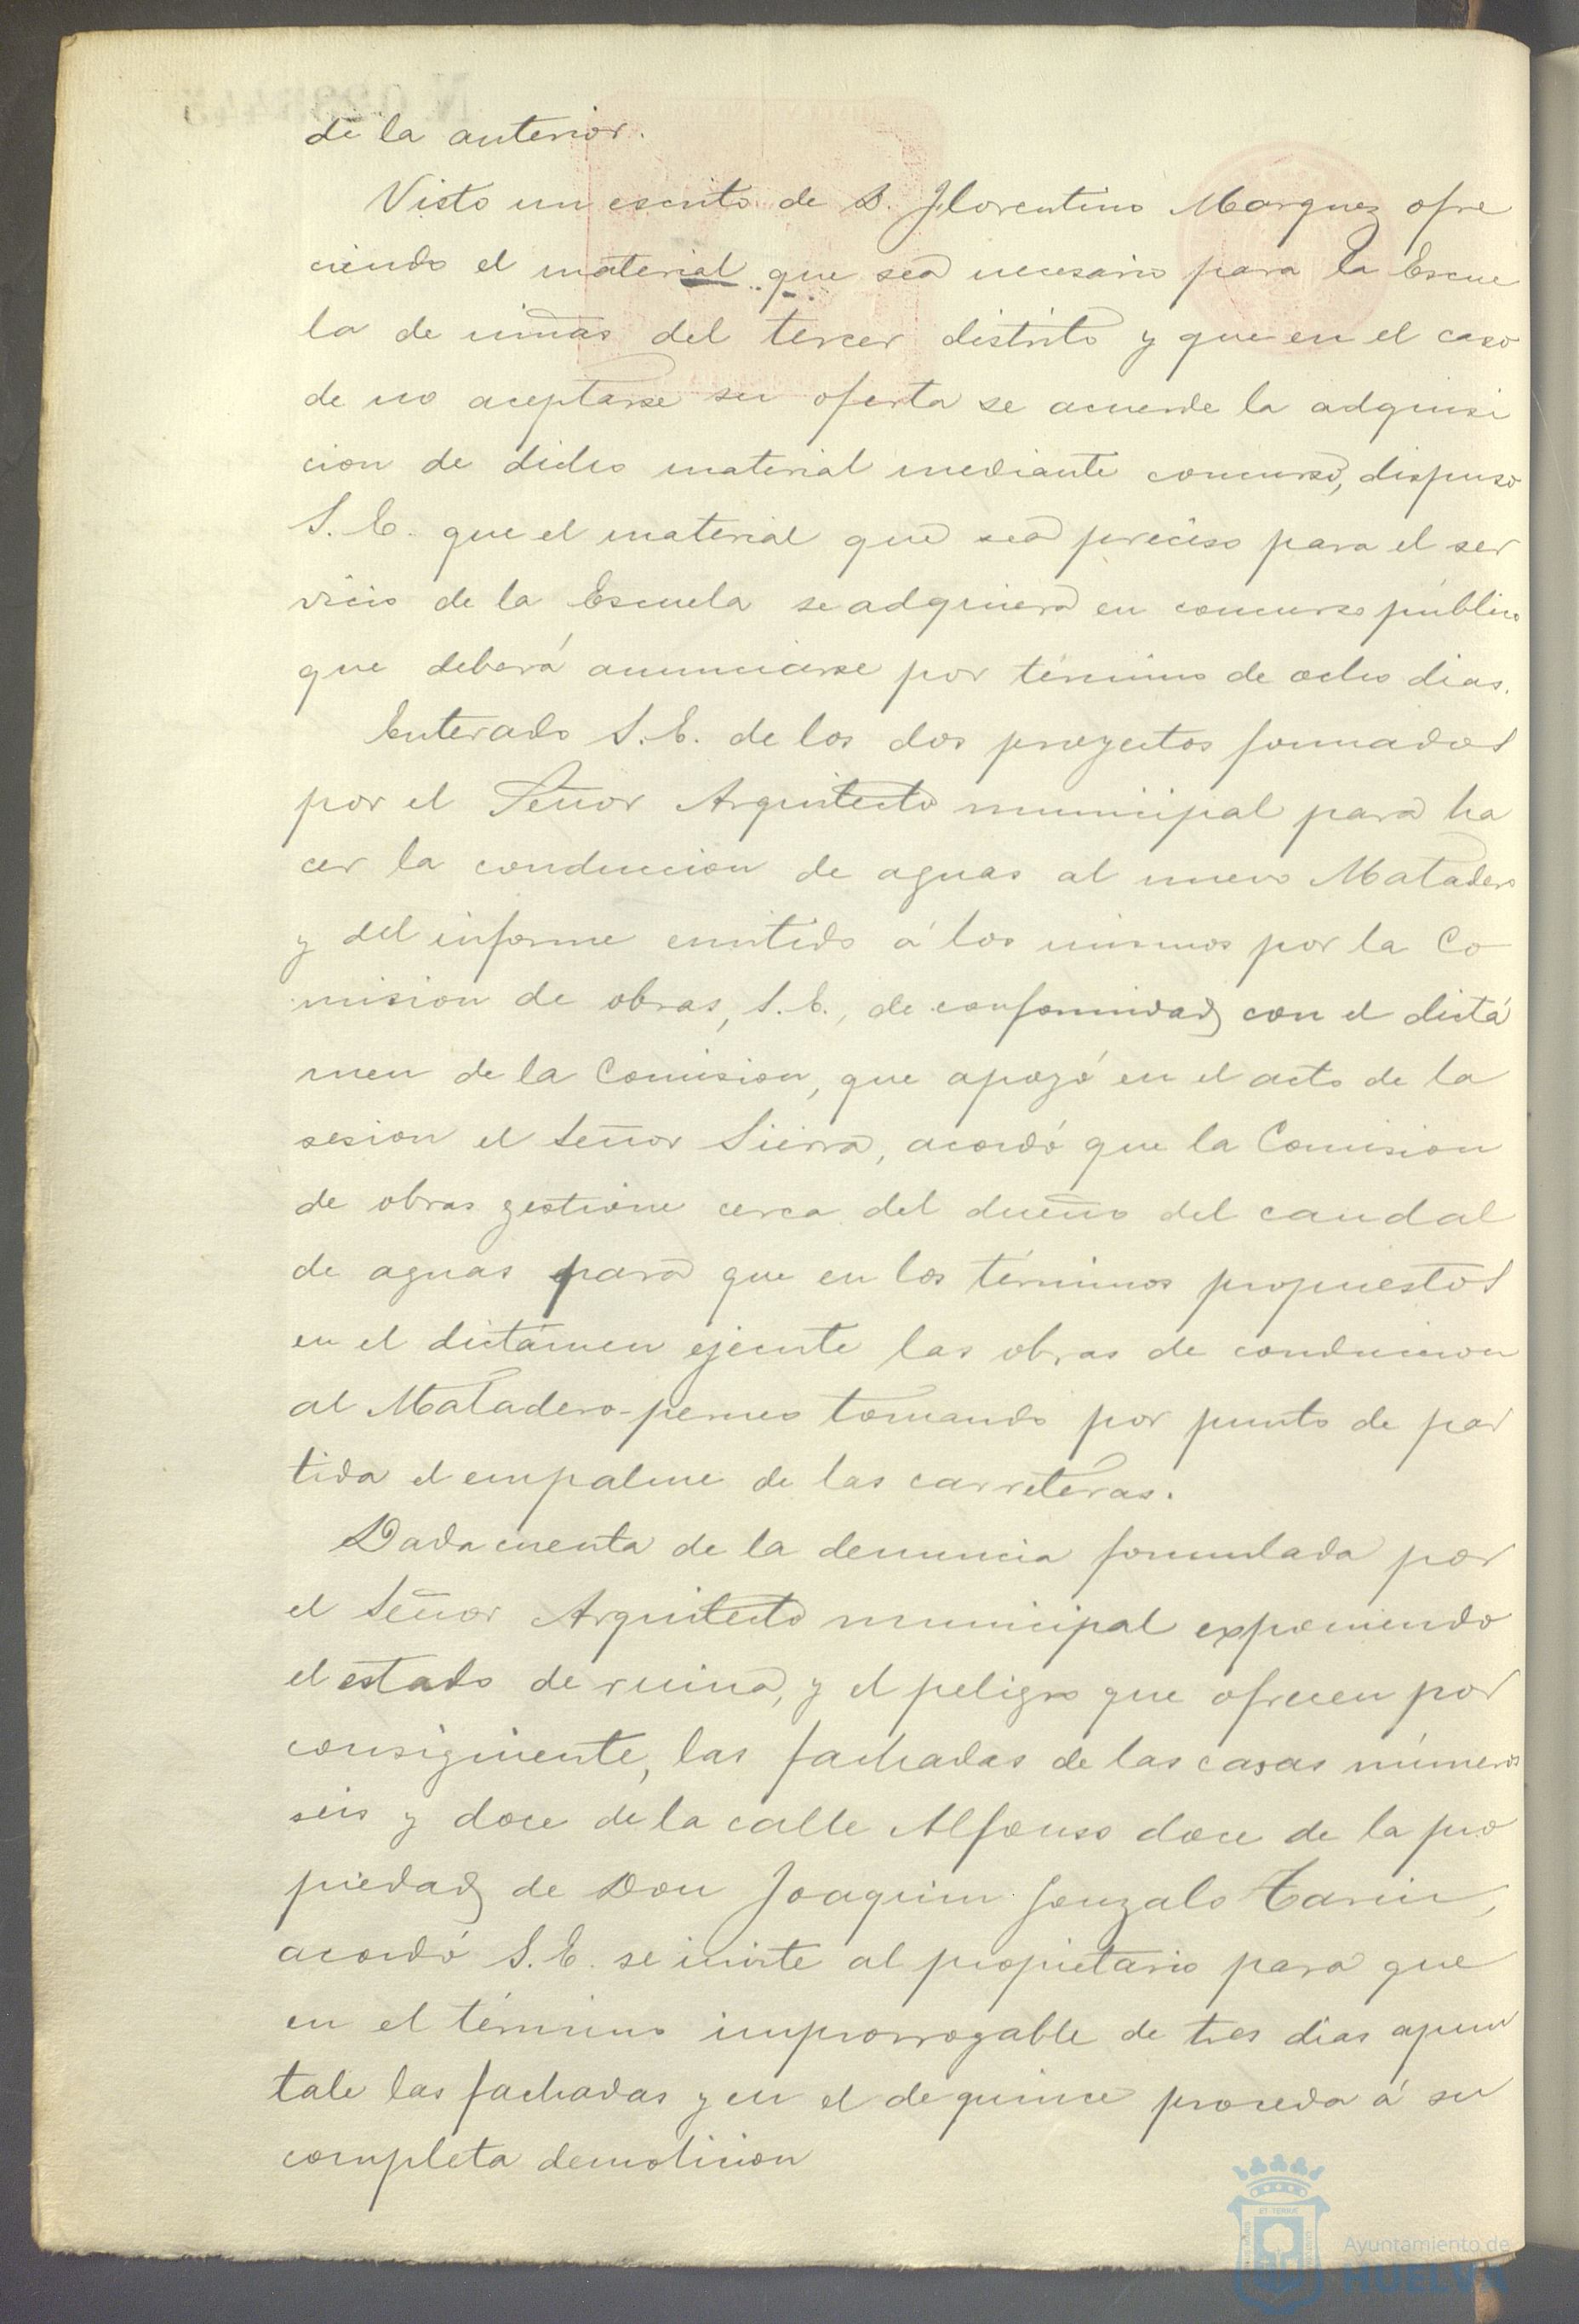 de la anterior.
Visto un escrito de D. Florentino Marquez ofre
ciendo el material que sea necesario para la Escue
la de niñas del tercer distrito y que en el caso
de no aceptarse su oferta se acuerde la adquisi
cion de dicho material mediante concurso, dispuso
S. E. que el material que sea preciso para el ser
vicio de la Escuela se adquiera en concurso público
que deberá anunciarse por término de ocho dias.
Enterado S. E. de los dos proyectos formados
por el Señor Arquitecto municipal para ha
cer la conduccion de aguas al nuevo Matadero
y del informe emitido á los mismos por la Co
mision de obras, S. E., de conformidad con el dictá
men de la Comision, que apoyó en el acto de la
sesion el Señor Sierra, acordó que la Comision
de obras gestione cerca del dueño del caudal
de aguas para que en los términos propuestos
en el dictámen ejecute las obras de conduccion
al Matadero pernes tomando por punto de par
tida el empalme de las carreteras.
Dada cuenta de la denuncia formulada por
el Señor Arquitecto municipal exponiendo
el estado de ruina, y el peligro que ofrecen por
consiguiente, las fachadas de las casas números
seis y doce de la calle Alfonso doce de la pro
piedad de Don Joaquin Gonzalo Tarin,
acordó S. E. se invite al propietario para que
en el término improrrogable de tres dias apun
tale las fachadas y en el de quince proceda á su
completa demolicion
Ayuntamiento de
HUELVA